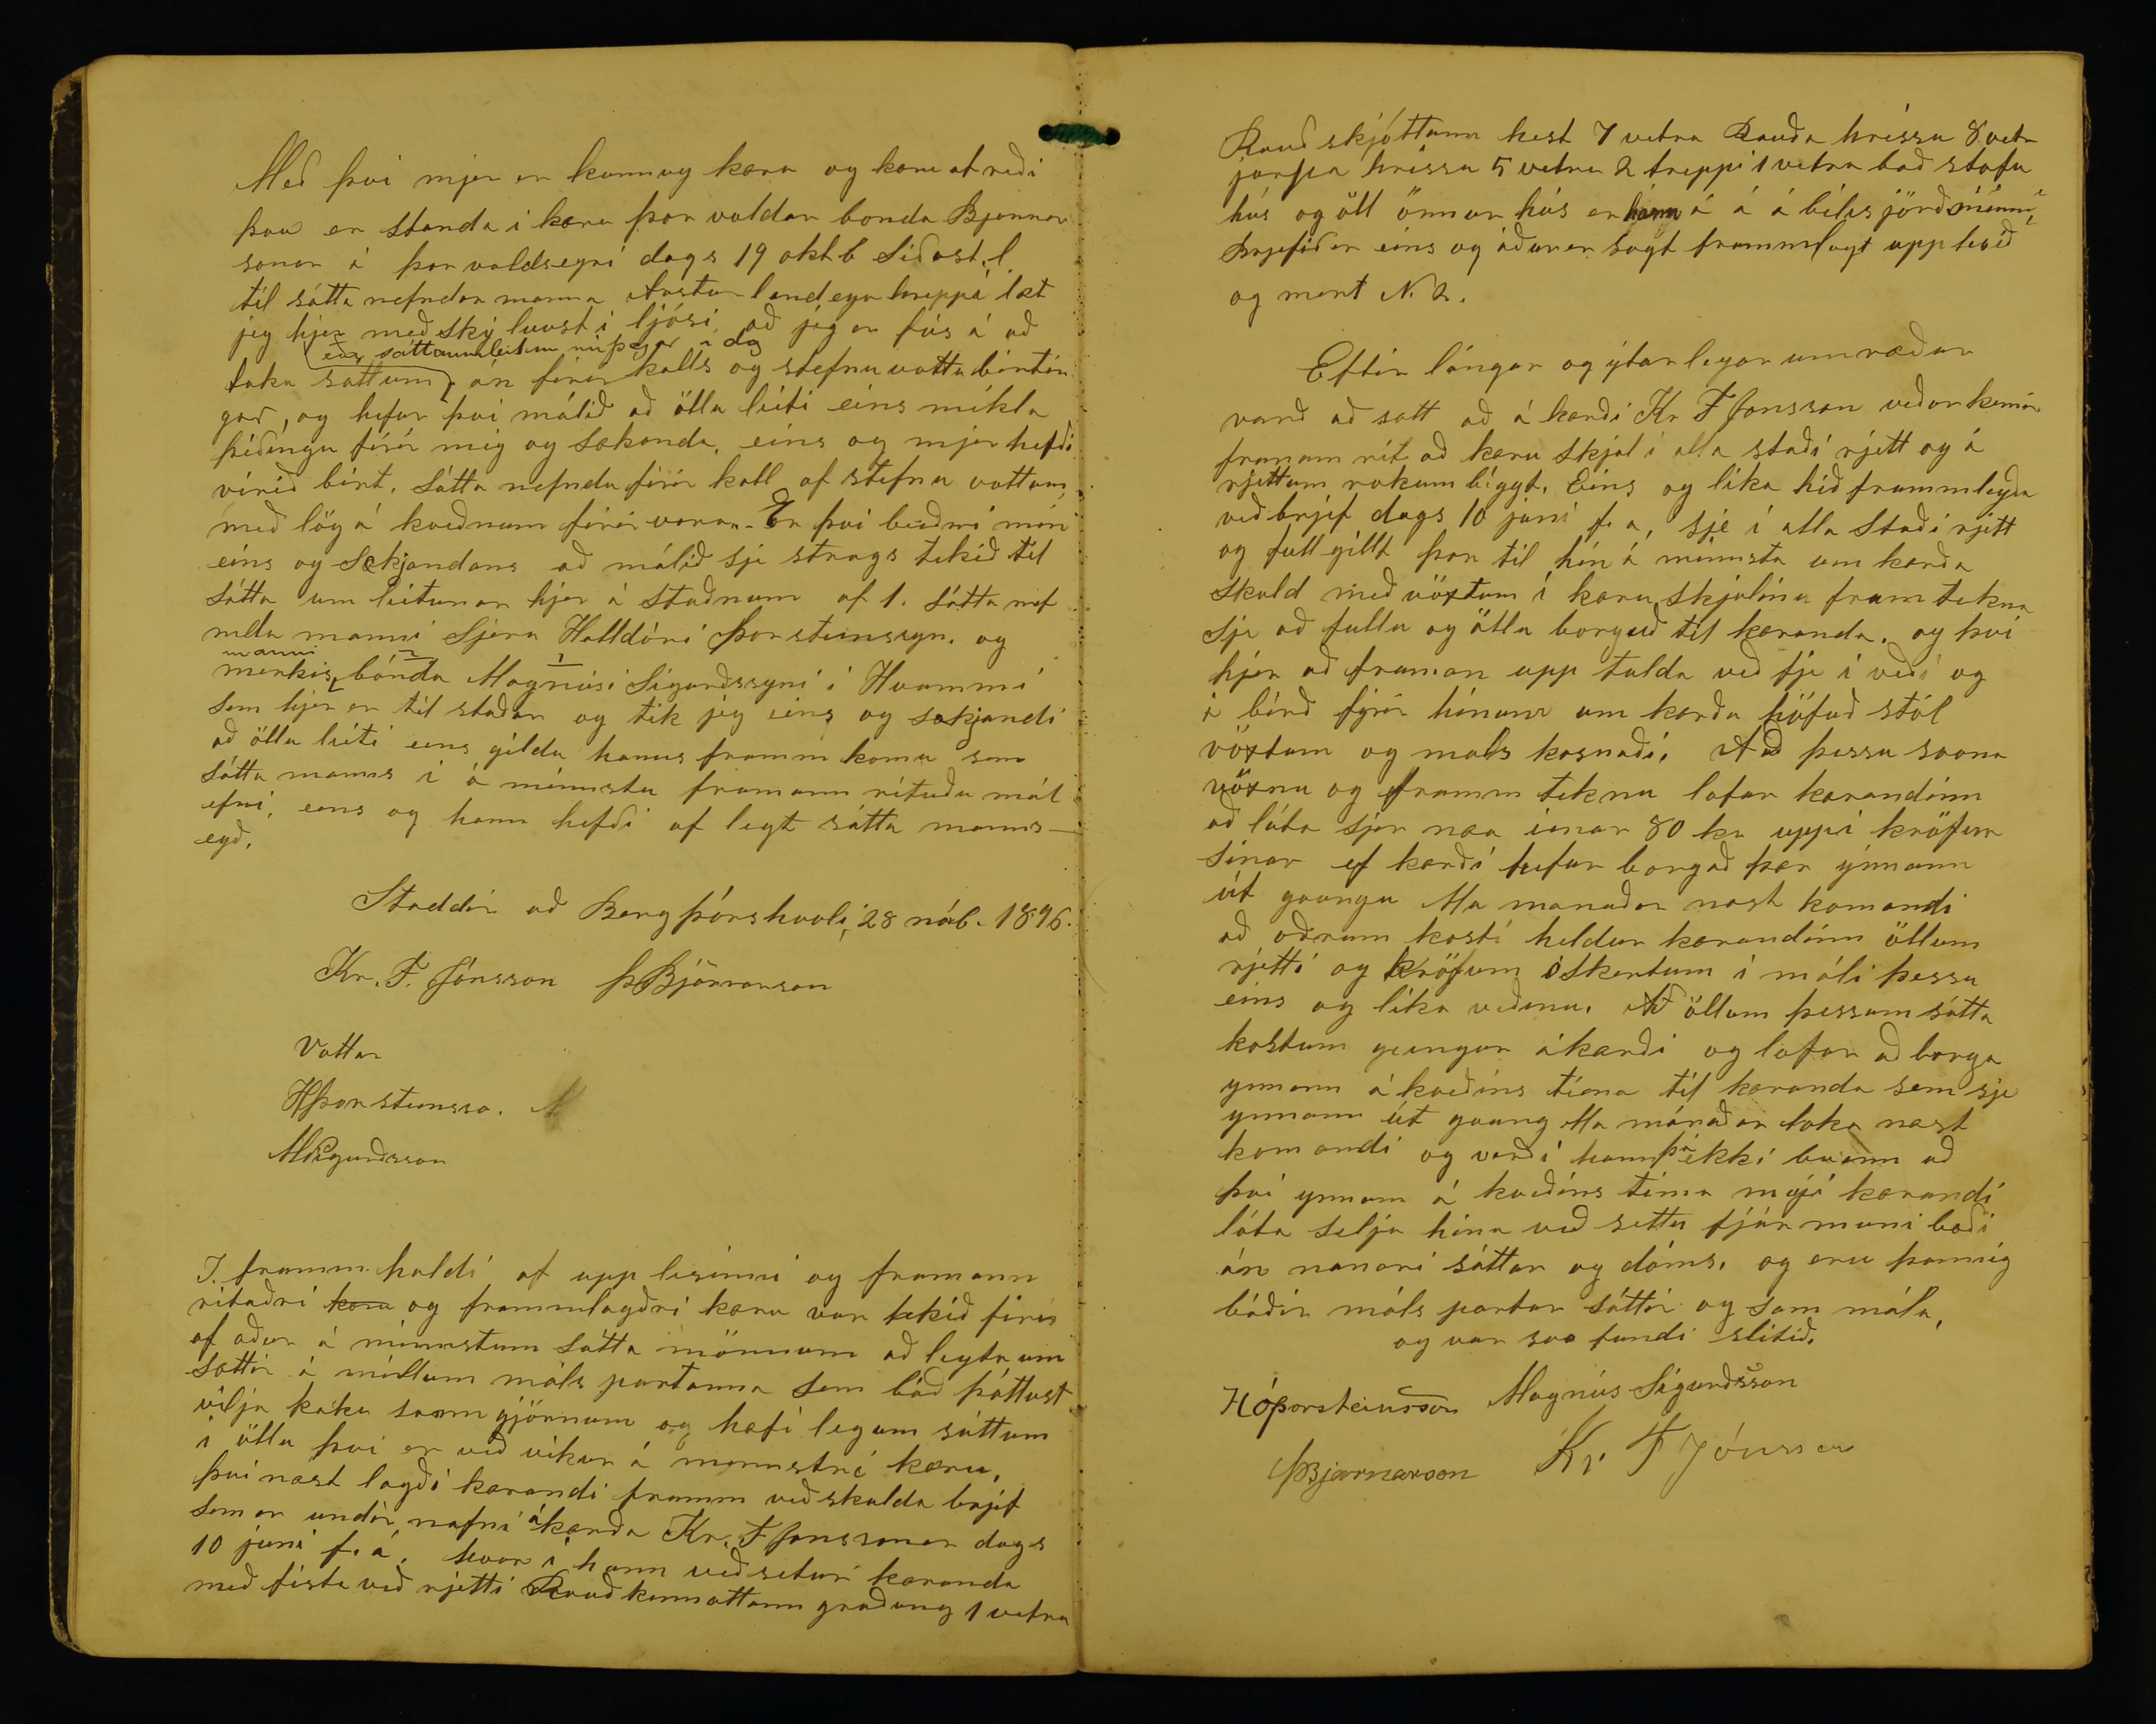 Með því mjer er kunnug kæra og kæru atriði
þau er standa i kæru þorvaldar bonda Bjarnar
sonar á þorvaldseyri dags 19 oktb Siðast.l.
til sátta nefndar manna Austur landeya hreppi læt
jeg hjer með ský laust i ljósi, að jeg er fús á að
eða sáttaumleitun nú þegar í dag
taka sáttum, án firir kalls og stefnu votta birtin
gar, og hefur því málið að öllu leiti eins mikla
þíðingu firir mig og Sækanda, eins og mjer hefði
virið birt. Sátta nefndu firir kall af stefnu vottum
með lög á kveðnum firirvara. Er því beiðni mín
eins og Sækjandans að málið sje strags tekið til
Sátta um leitunar hjer á Staðnum af 1. Sátta nef
ndar manni Sjera Halldóri þorsteinssyni og
manni
merkis bónda Magnúsi Sigurðssyni i Hvammi
Sem hjer er til staðar og tek jeg eins og sækjandi
að öllu leiti eins gilda hanns framm komu sem
Sátta manns i á minnstu framann rituðu mál
efni, eins og hann hefði af legt sátta manns-
eyð.
Staddir að Bergþórshvoli, 28 nób. 1896.
Kr. F. Jónsson þBjörnarson
Vottar
HÞorsteinsso.
MSigurðsson
I. framm haldi af upp lesinni og framann
ritaðri kæru og frammlagðri kæru var tekið firir
af aður á minnstum Sátta mönnum að leyta um
Sættir á millum máls partanna Sem báð þóttust
vilja taka sanngjörnum og hæfi legum sáttum
i öllu því er við vikur á mennstri kæru,
því næst lagði kærandi framm veðskulda brjef
Sem er undir nafni ákærða Kr. F Jonssonar dags
10 juni f. á. hvar i hann veðsetur kæranda
með fista veð rjetti Rauðkinnottann graðung 1 vetra
Rauðskjóttann hest 7 vetra Rauða hrissu 8 vetr
jarpa hrissu 5 vetra 2 treppi 1 vetra bað stofu
hús og öll önnur hús er hann á á á bílis jörð sinni,
Brjefið er eins og áður er sagt frammlagt upp lesið
og mert N. 2.
Eftir lángar og ýtarlegar umræður
varð að satt að á kærði Kr F Jonsson viðurkennir
framan rit að kæru Skjal i alla staði rjett og á
rjettum rökum bíggt. Eins og lika hið frammlagða
veðbrjef dags 10 juni f. a, sje i alla Staði rjett
og fullgillt þar til hin á minnsta um kærða
skuld með vöxtum i kæru skjalinu fram tekna
Sje að fullu og öllu borguð til kæranda. og því
hjer að framan upp talda veð fje i veði og
á birð fyrir hinum um kærða höfuð stól
vöxtum og mals kosnaði. Að þessu svona
vöxnu og framm teknu lofar kærandinn
að láta sjer næa einar 80 kr uppi kröfur
sinar ef kærði hefur borgað þær ýnnann
út gaungu Ma manaðar næst komandi
að oðrum kosti heldur kærandinn öllum
rjetti og kröfum óskertum i máli þessu
eins og lika veðinu. Að öllum þessum sátta
kostum geingur ákærði og lofar að borga
ynnann á kveðins tíma til kæranda sem sje
ynnann út gaung Ma mánaðar loka næst
komandi og verði hann þá ekki buinn að
því ynnann á kveðins tima megi kærandi
láta selja hina veð settu fjár muni bæði
án nanari sáttar og dóms, og eru þannig
báðir máls partar sáttir og sam mála,
og var svo fundi slitið.
HÓÞorsteinsson Magnús Sigurðsson
ÞBjarnarson Kr F Jónsson